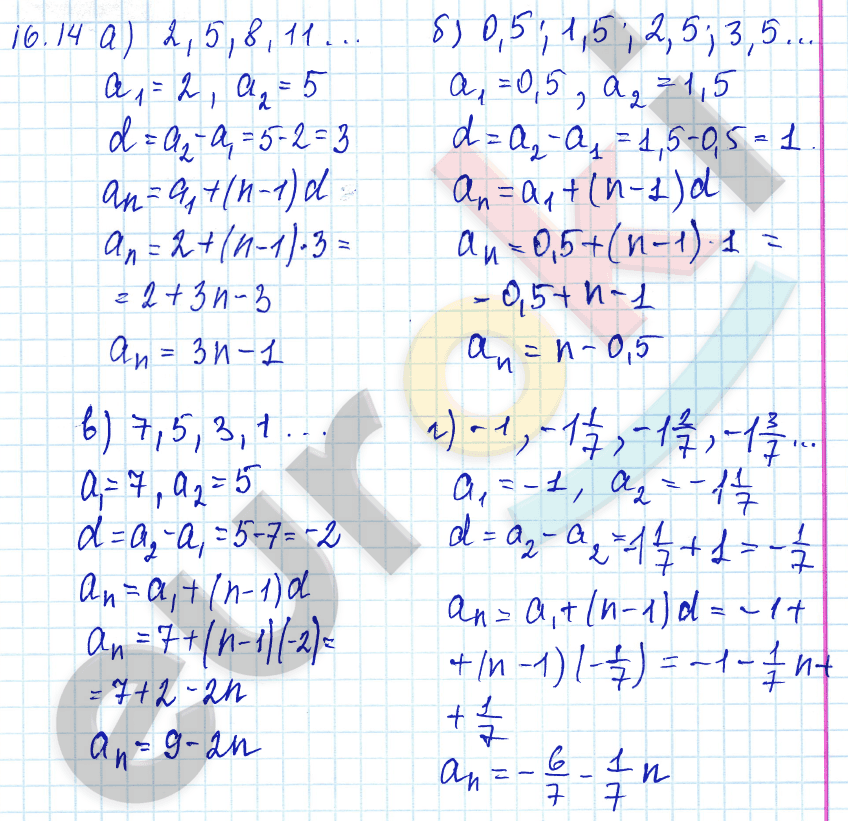 16.14 а) 2, 5, 8, 11...
a₁ = 2, a₂ = 5
d = a₂ - a₁ = 5 - 2 = 3
aₙ = a₁ + (n-1)d
aₙ = 2 + (n-1)·3 =
= 2 + 3n - 3
aₙ = 3n - 1
б) 0,5; 1,5; 2,5; 3,5...
a₁ = 0,5, a₂ = 1,5
d = a₂ - a₁ = 1,5 - 0,5 = 1.
aₙ = a₁ + (n-1)d
aₙ = 0,5 + (n-1)·1 =
- 0,5 + n - 1
aₙ = n - 0,5
в) 7, 5, 3, 1...
a₁ = 7, a₂ = 5
d = a₂ - a₁ = 5 - 7 = -2
aₙ = a₁ + (n-1)d
aₙ = 7 + (n-1)(-2) =
= 7 + 2 - 2n
aₙ = 9 - 2n
г) -1, -1 1/7, -1 2/7, -1 3/7...
a₁ = -1, a₂ = -1 1/7
d = a₂ - a₂ = -1 1/7 + 1 = -1/7
aₙ = a₁ + (n-1)d = -1 +
+ (n-1)(-1/7) = -1 - 1/7 n +
+ 1/7
aₙ = -6/7 - 1/7 n
euroki